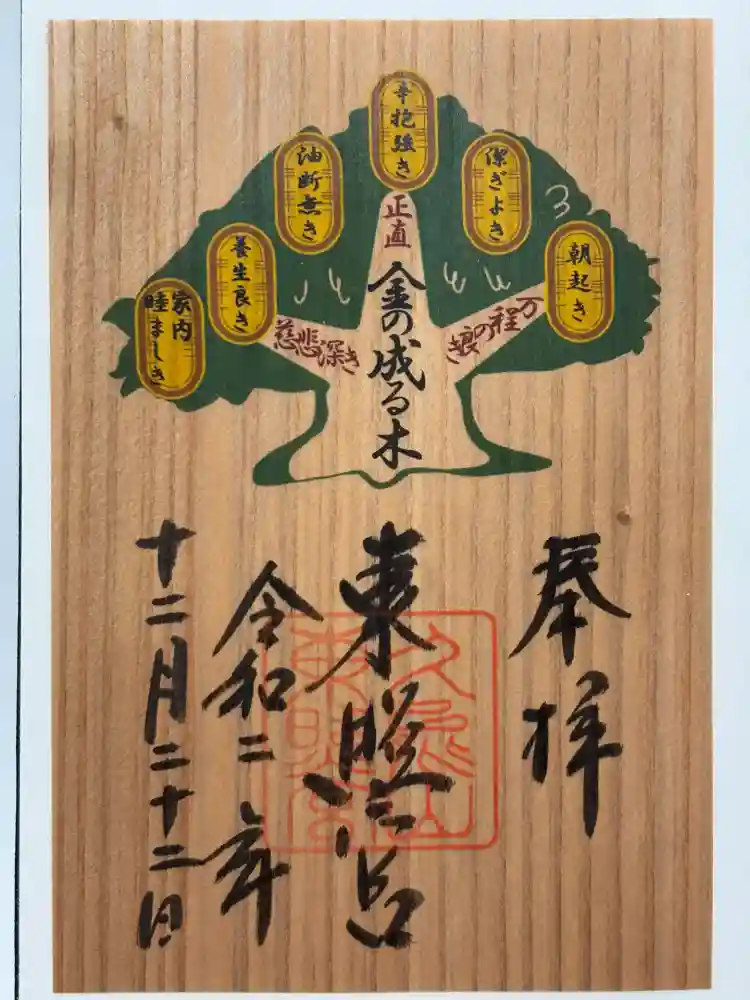 朝起き
潔ぎよき
辛抱強き
油断無き
養生良き
家内
睦ましき
正直
万の程の良き
慈悲深き
金の成る木
奉拝
東照宮
久能山
東照宮
令和二年
十二月二十二日